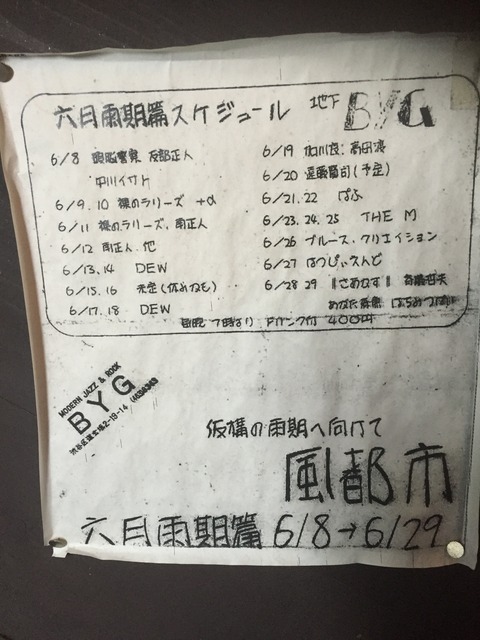 六月雨期篇スケジュール 地下 BYG
6/8 頭脳警察 友部正人
中川イサト
6/9.10 裸のラリーズ +α
6/11 裸のラリーズ. 南正人
6/12 南正人. 他
6/13.14 DEW
6/15.16 未定(休みかも)
6/17.18 DEW
6/19 加川良. 高田渡
6/20 遠藤賢司(予定)
6/21.22 ぱふ
6/23.24.25 THE M
6/26 ブルース・クリエイション
6/27 はっぴいえんど
6/28 29 斉藤哲夫
あがた森魚 はちみつぱい
毎晩 7時より ドリンク付 400円
MODERN JAZZ & ROCK
BYG
渋谷区道玄坂2-19-14
仮構の雨期へ向けて
風都市
六月雨期篇 6/8→6/29